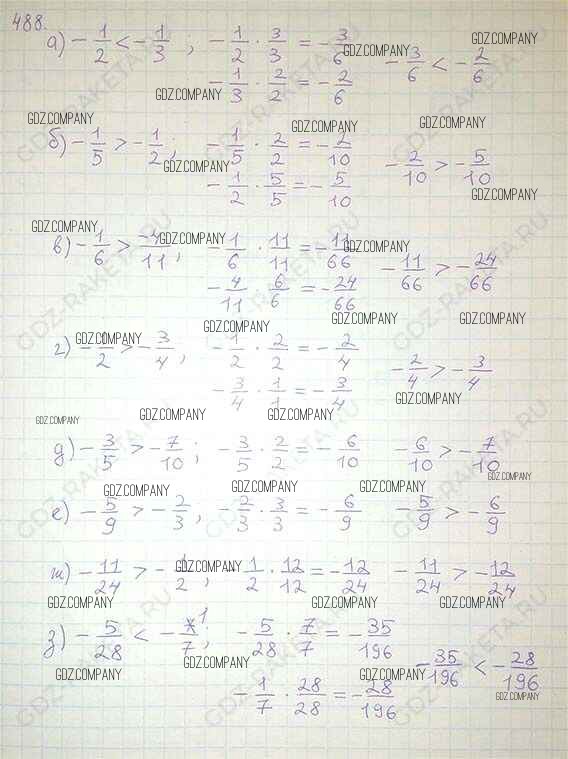 488.
а) -1/2 < -1/3 ; -1/2 · 3/3 = -3/6
-1/3 · 2/2 = -2/6
-3/6 < -2/6
б) -1/5 > -1/2 ; -1/5 · 2/2 = -2/10
-1/2 · 5/5 = -5/10
-2/10 > -5/10
в) -1/6 > -4/11 ; 1/6 · 11/11 = -11/66
-4/11 6/6 = -24/66
-11/66 > -24/66
г) -1/2 > -3/4 ; -1/2 · 2/2 = -2/4
-3/4 · 1/1 = -3/4
-2/4 > -3/4
д) -3/5 > -7/10 ; -3/5 · 2/2 = -6/10 -6/10 > -7/10
е) -5/9 > -2/3 ; -2/3 · 3/3 = -6/9 -5/9 > -6/9
ж) -11/24 > -1/2 ; 1/2 · 12/12 = -12/24 -11/24 > -12/24
з) -5/28 < -1/7 ; -5/28 · 7/7 = -35/196
-1/7 · 28/28 = -28/196
-35/196 < -28/196
GDZ.COMPANY
GDZ-RAKETA.RU